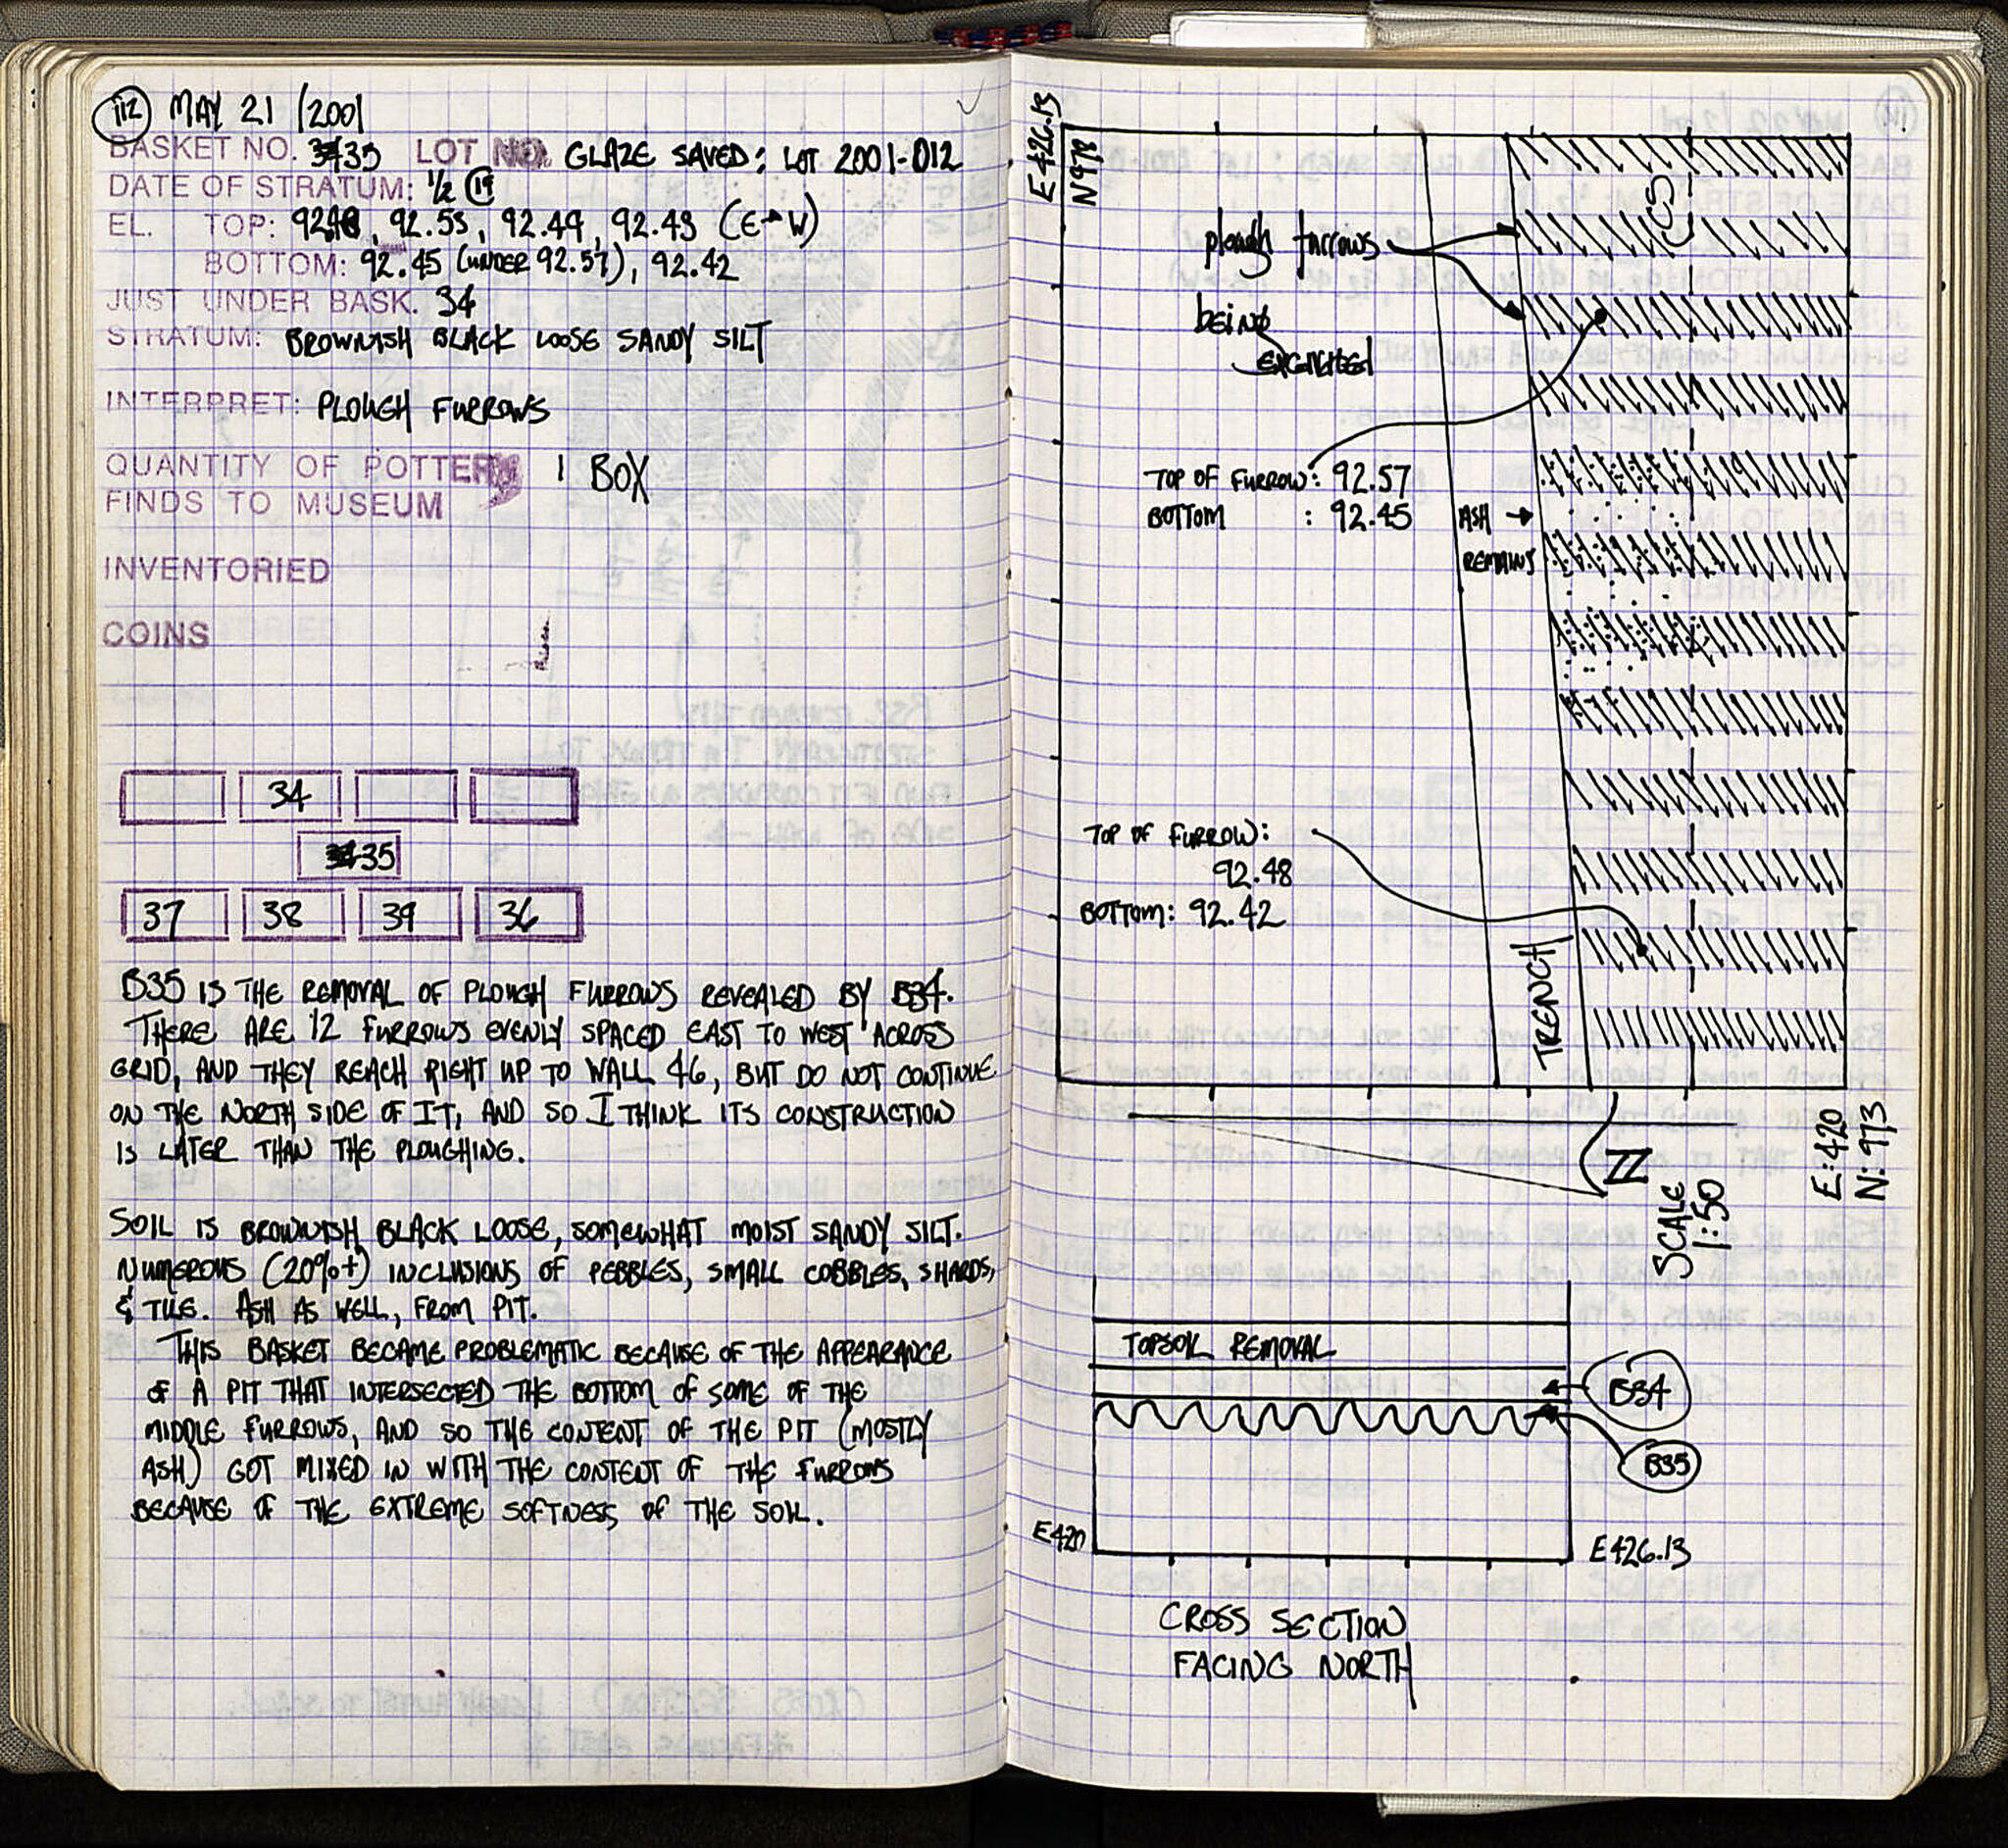 112 MAY 21 /2001
BASKET NO. 35 LOT NO. GLAZE SAVED: LOT 2001-012
DATE OF STRATUM: 1/2 19
EL. TOP: , 92.53, 92.49, 92.43 (E→W)
BOTTOM: 92.45 (UNDER 92.57), 92.42
JUST UNDER BASK. 34
STRATUM: BROWNISH BLACK LOOSE SANDY SILT
INTERPRET: PLOUGH FURROWS
QUANTITY OF POTTERY 1 BOX
FINDS TO MUSEUM
INVENTORIED
COINS
34
35
37 38 39 36
B35 IS THE REMOVAL OF PLOUGH FURROWS REVEALED BY B34.
THERE ARE 12 FURROWS EVENLY SPACED EAST TO WEST ACROSS
GRID, AND THEY REACH RIGHT UP TO WALL 46, BUT DO NOT CONTINUE
ON THE NORTH SIDE OF IT, AND SO I THINK ITS CONSTRUCTION
IS LATER THAN THE PLOUGHING.
SOIL IS BROWNISH BLACK LOOSE, SOMEWHAT MOIST SANDY SILT.
NUMEROUS (20%+) INCLUSIONS OF PEBBLES, SMALL COBBLES, SHARDS,
& TILE. ASH AS WELL, FROM PIT.
THIS BASKET BECAME PROBLEMATIC BECAUSE OF THE APPEARANCE
OF A PIT THAT INTERSECTED THE BOTTOM OF SOME OF THE
MIDDLE FURROWS, AND SO THE CONTENT OF THE PIT (MOSTLY
ASH) GOT MIXED IN WITH THE CONTENT OF THE FURROWS
BECAUSE OF THE EXTREME SOFTNESS OF THE SOIL.
E426.13
N978
plough furrows
being
excavated
TOP OF FURROW: 92.57
BOTTOM : 92.45
ASH →
REMAINS
TOP OF FURROW:
92.48
BOTTOM: 92.42
TRENCH
N
SCALE
1:50
E:420
N:973
TOPSOIL REMOVAL
B34
B35
E420
E426.13
CROSS SECTION
FACING NORTH